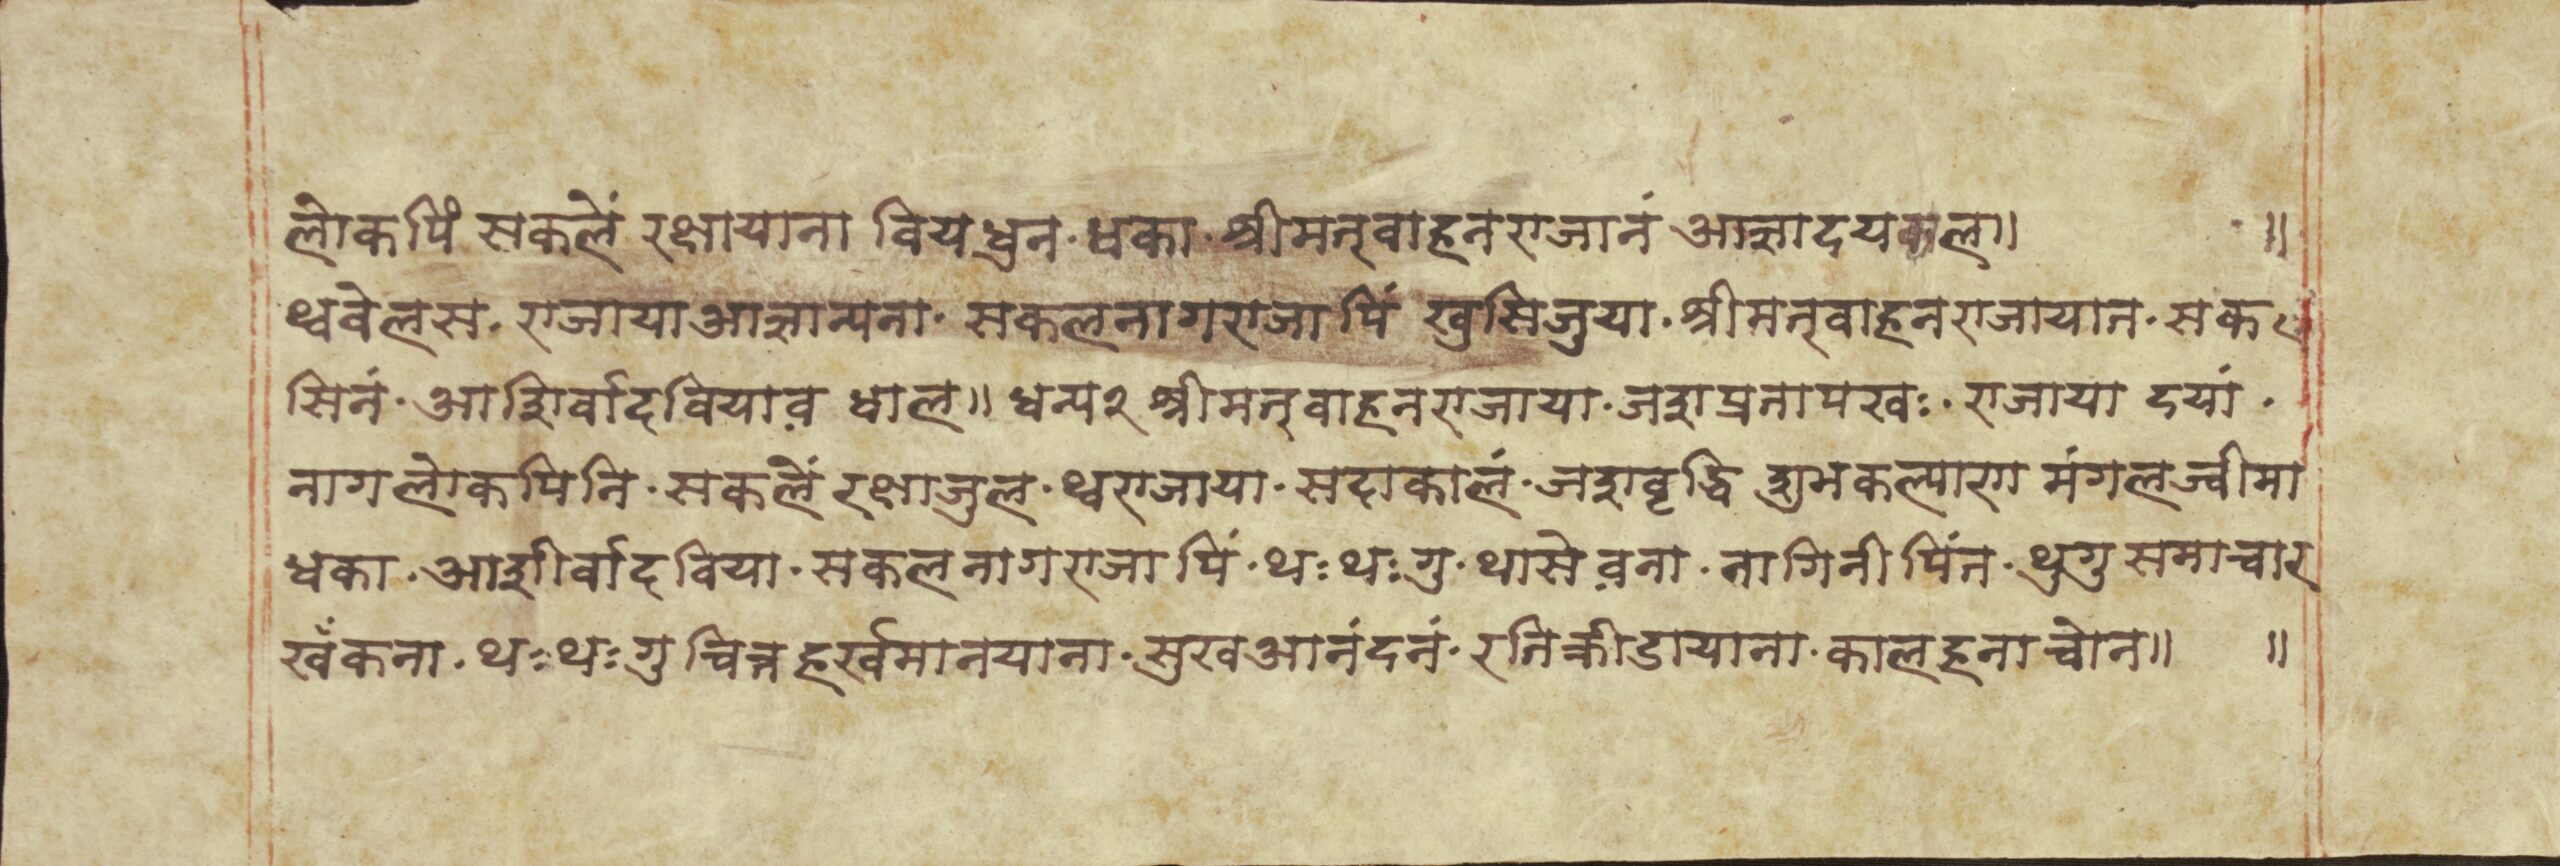 लोकपिं सकलें रक्षायाना वियधुन· धका· श्रीमत्वाहनराजानं आज्ञादयकल॥ ॥
थ्ववेलस· राजायाआज्ञान्यना· सकलनागराजापिं खुसिजुया· श्रीमत्वाहनराजायात· सकल
सिनं· आशिर्वादवियाव़ धाल॥ धन्य२ श्रीमत्वाहनराजाया· जशप्रतापखः· राजाया दयां·
नागलोकपिनि· सकलें रक्षाजुल· थ्वराजाया· सदाकालं· जशवृद्धि शुभकल्याण मंगलज्वीमा
धका· आशीर्वादविया· सकलनागराजापिं· थःथःगु· थासेव़ना· नागिनीपिंत· थुगुसमाचार
खँकना· थःथःगुचित्तहर्खमानयाना· सुखआनंदनं· रतिक्रीडायाना· कालहनाचोन॥ ॥